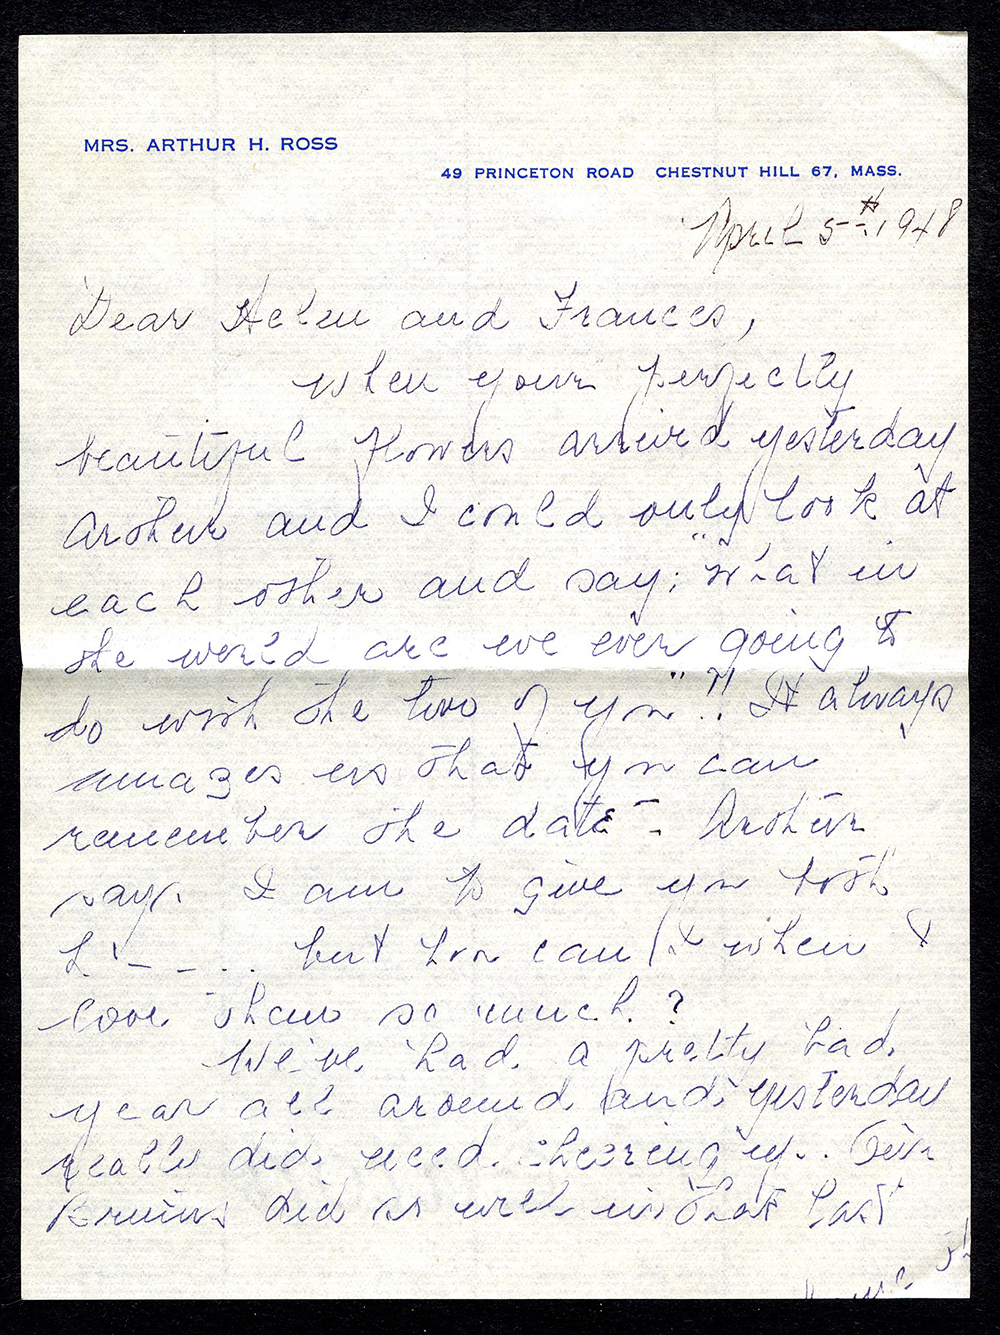 MRS. ARTHUR H. ROSS
49 PRINCETON ROAD CHESTNUT HILL 67, MASS.
April 5th 1948
Dear Helen and Frances,
When your perfectly
beautiful flowers arrived yesterday
Arthur and I could only look at
each other and say: "What in
the world are we ever going to
do with the two of you"?! It always
amazes us that you can
remember the date - Arthur
says I am to give you both
h - - ... but how can I when I
love them so much?
We've had a pretty bad
year all around and yesterday
really did need cheering up. Our
Bruins did so well in that last